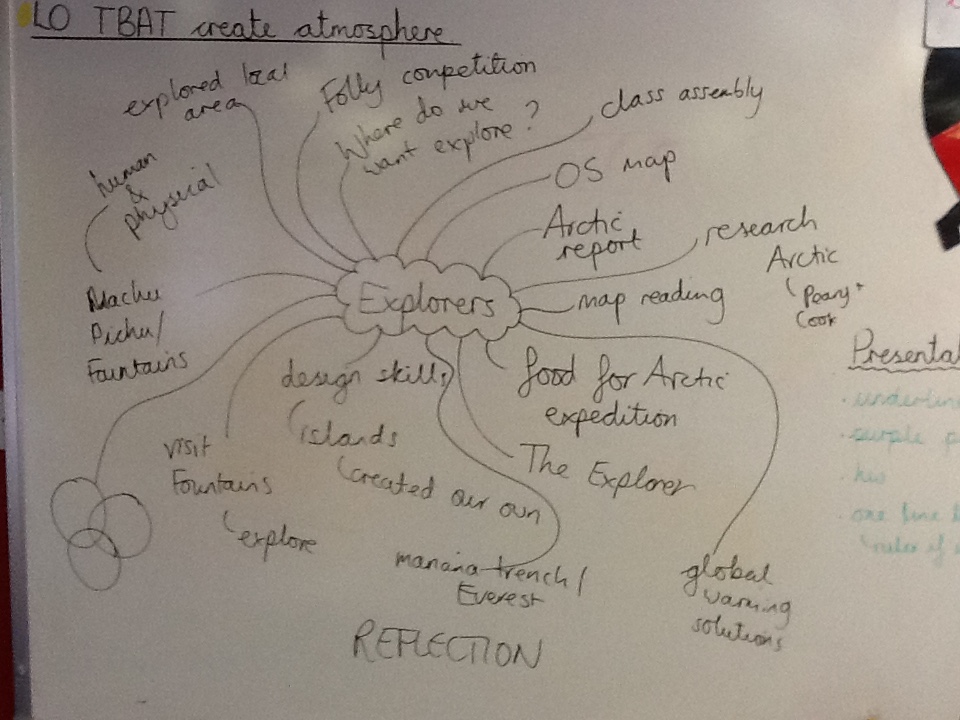 LO TBAT create atmosphere
explored local
area
Folly competition
Where do we
want explore?
class assembly
OS map
human
&
physical
Arctic
report
research
Arctic
Peary +
Cook
Machu
Pichu/
Fountains
Explorers
map reading
design skills
islands
created our own
food for Arctic
expedition
The Explorer
visit
Fountains
explore
mariana trench/
Everest
global
warming
solutions
REFLECTION
Presenta
· underlin
· purple p
· one line
rules of